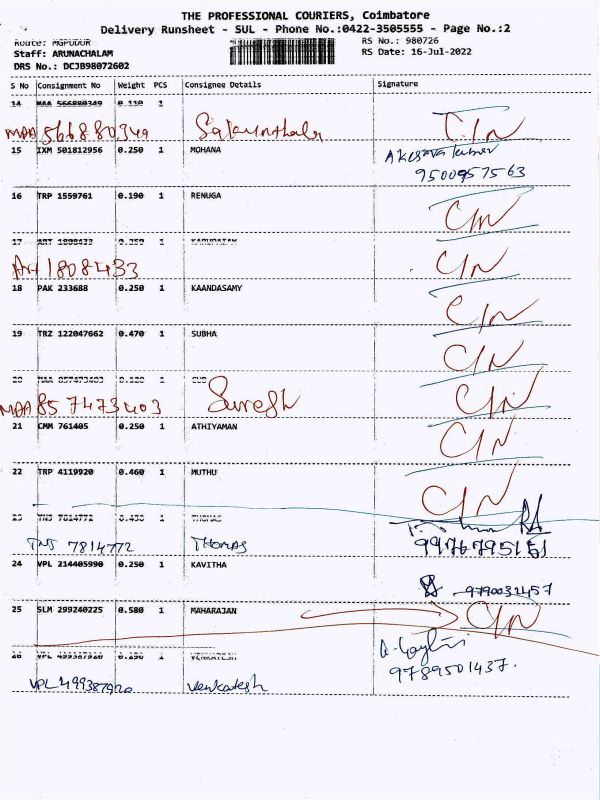 THE PROFESSIONAL COURIERS, Coimbatore
Delivery Runsheet - SUL - Phone No.:0422-3505555 - Page No.:2
Route: MGPUDUR
RS No.: 980726
Staff: ARUNACHALAM
RS Date: 16-Jul-2022
DRS No.: DCJB98072602
S No Consignment No Weight PCS Consignee Details Signature
14 MAA 566880349 0.110 1
MAA 566880349 Sakunthala C/N
15 IXM 501812956 0.250 1 MOHANA
9500957563
16 TRP 1559761 0.190 1 RENUGA C/N
17 ART 1808433 0.350 1
Art 1808433 C/N
18 PAK 233688 0.250 1 KAANDASAMY C/N
19 TRZ 122047662 0.470 1 SUBHA C/N
20 MAA 857473403 0.120 1
MAA 857473403 Suresh C/N
21 CMM 761405 0.250 1 ATHIYAMAN C/N
22 TRP 4119920 0.460 1 MUTHU C/N
23 TNJ 7814772 0.450 1 THOMAS
TNJ 7814772 Thomas 9976795151
24 VPL 214405990 0.250 1 KAVITHA
9790032457
25 SLM 299240225 0.580 1 MAHARAJAN C/N
26 VPL 499387920 0.250 1 VENKATESH
VPL 499387920 Venkatesh 9789501437.